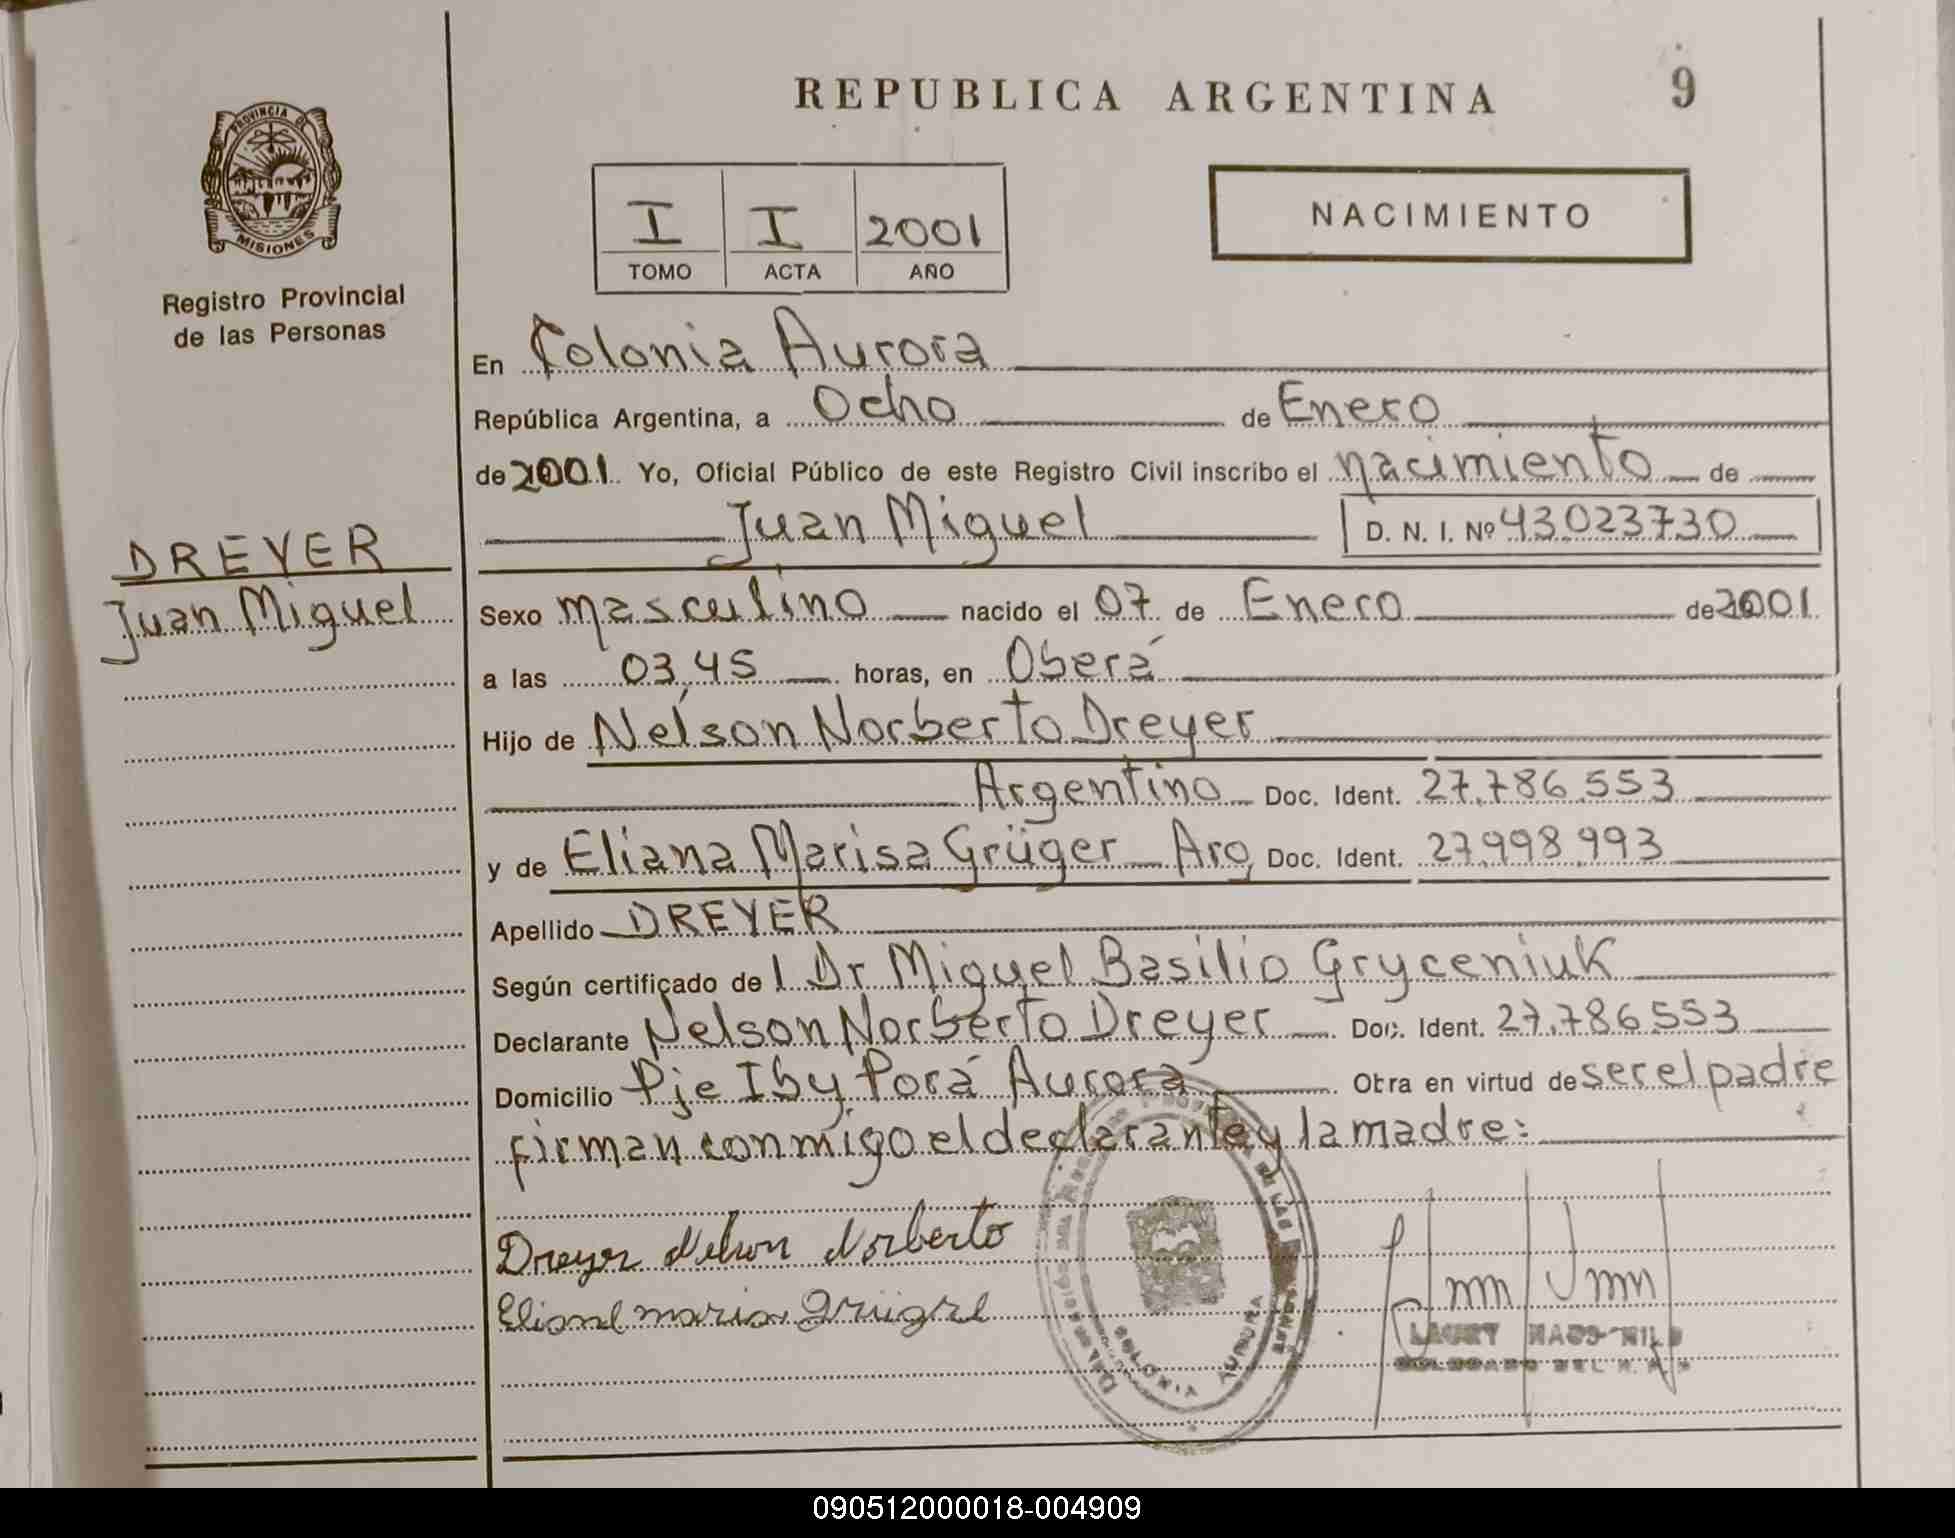 REPUBLICA ARGENTINA 9
PROVINCIA DE
MISIONES
Registro Provincial
de las Personas
I I 2001
TOMO ACTA AÑO
NACIMIENTO
En Colonia Aurora
República Argentina, a Ocho de Enero
de 2001. Yo, Oficial Público de este Registro Civil inscribo el nacimiento de
Juan Miguel D. N. I. Nº 43023730
DREYER
Juan Miguel
Sexo masculino nacido el 07 de Enero de 2001.
a las 03,45 horas, en Oberá
Hijo de Nelson Norberto Dreyer
Argentino Doc. Ident. 27.786.553
y de Eliana Marisa Grüger Arg, Doc. Ident. 27.998.993
Apellido DREYER
Según certificado de l Dr Miguel Basilio Gryceniuk
Declarante Nelson Norberto Dreyer Doc. Ident. 27.786.553
Domicilio Pje Iby Porá Aurora Otra en virtud de ser el padre
firman conmigo el declarante y la madre:
Dreyer Nelson Norberto
COLONIA AURORA
090512000018-004909